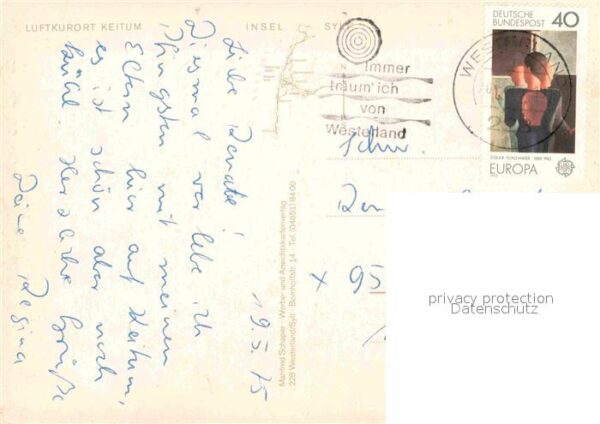 LUFTKURORT KEITUM
INSEL SYLT
19.5.75
Liebe Renate!
Diesmal verlebe ich
Pfingsten mit meinen
Eltern hier auf Keitum,
es ist schön aber noch
kühl. Herzliche Grüße
Deine Regina
Manfred Schaper · Werbe- und Ansichtskartenverlag
228 Westerland/Sylt · Bomhoffstr. 14 · Tel. (04651) 84 00
Immer
träum' ich
von
Westerland
WESTERLAND
DEUTSCHE
BUNDESPOST 40
OSKAR SCHLEMMER 1888-1943
EUROPA
CEPT
Schw.
Ren
x 95
privacy protection
Datenschutz